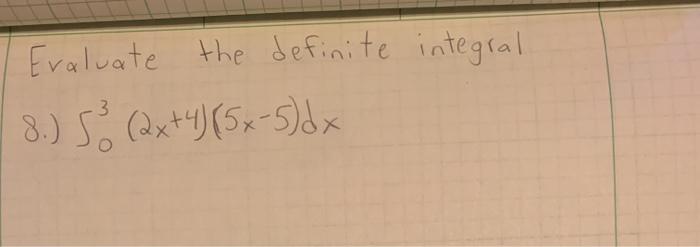 Evaluate the definite integral
8.) ∫₀³ (2x+4)(5x-5)dx